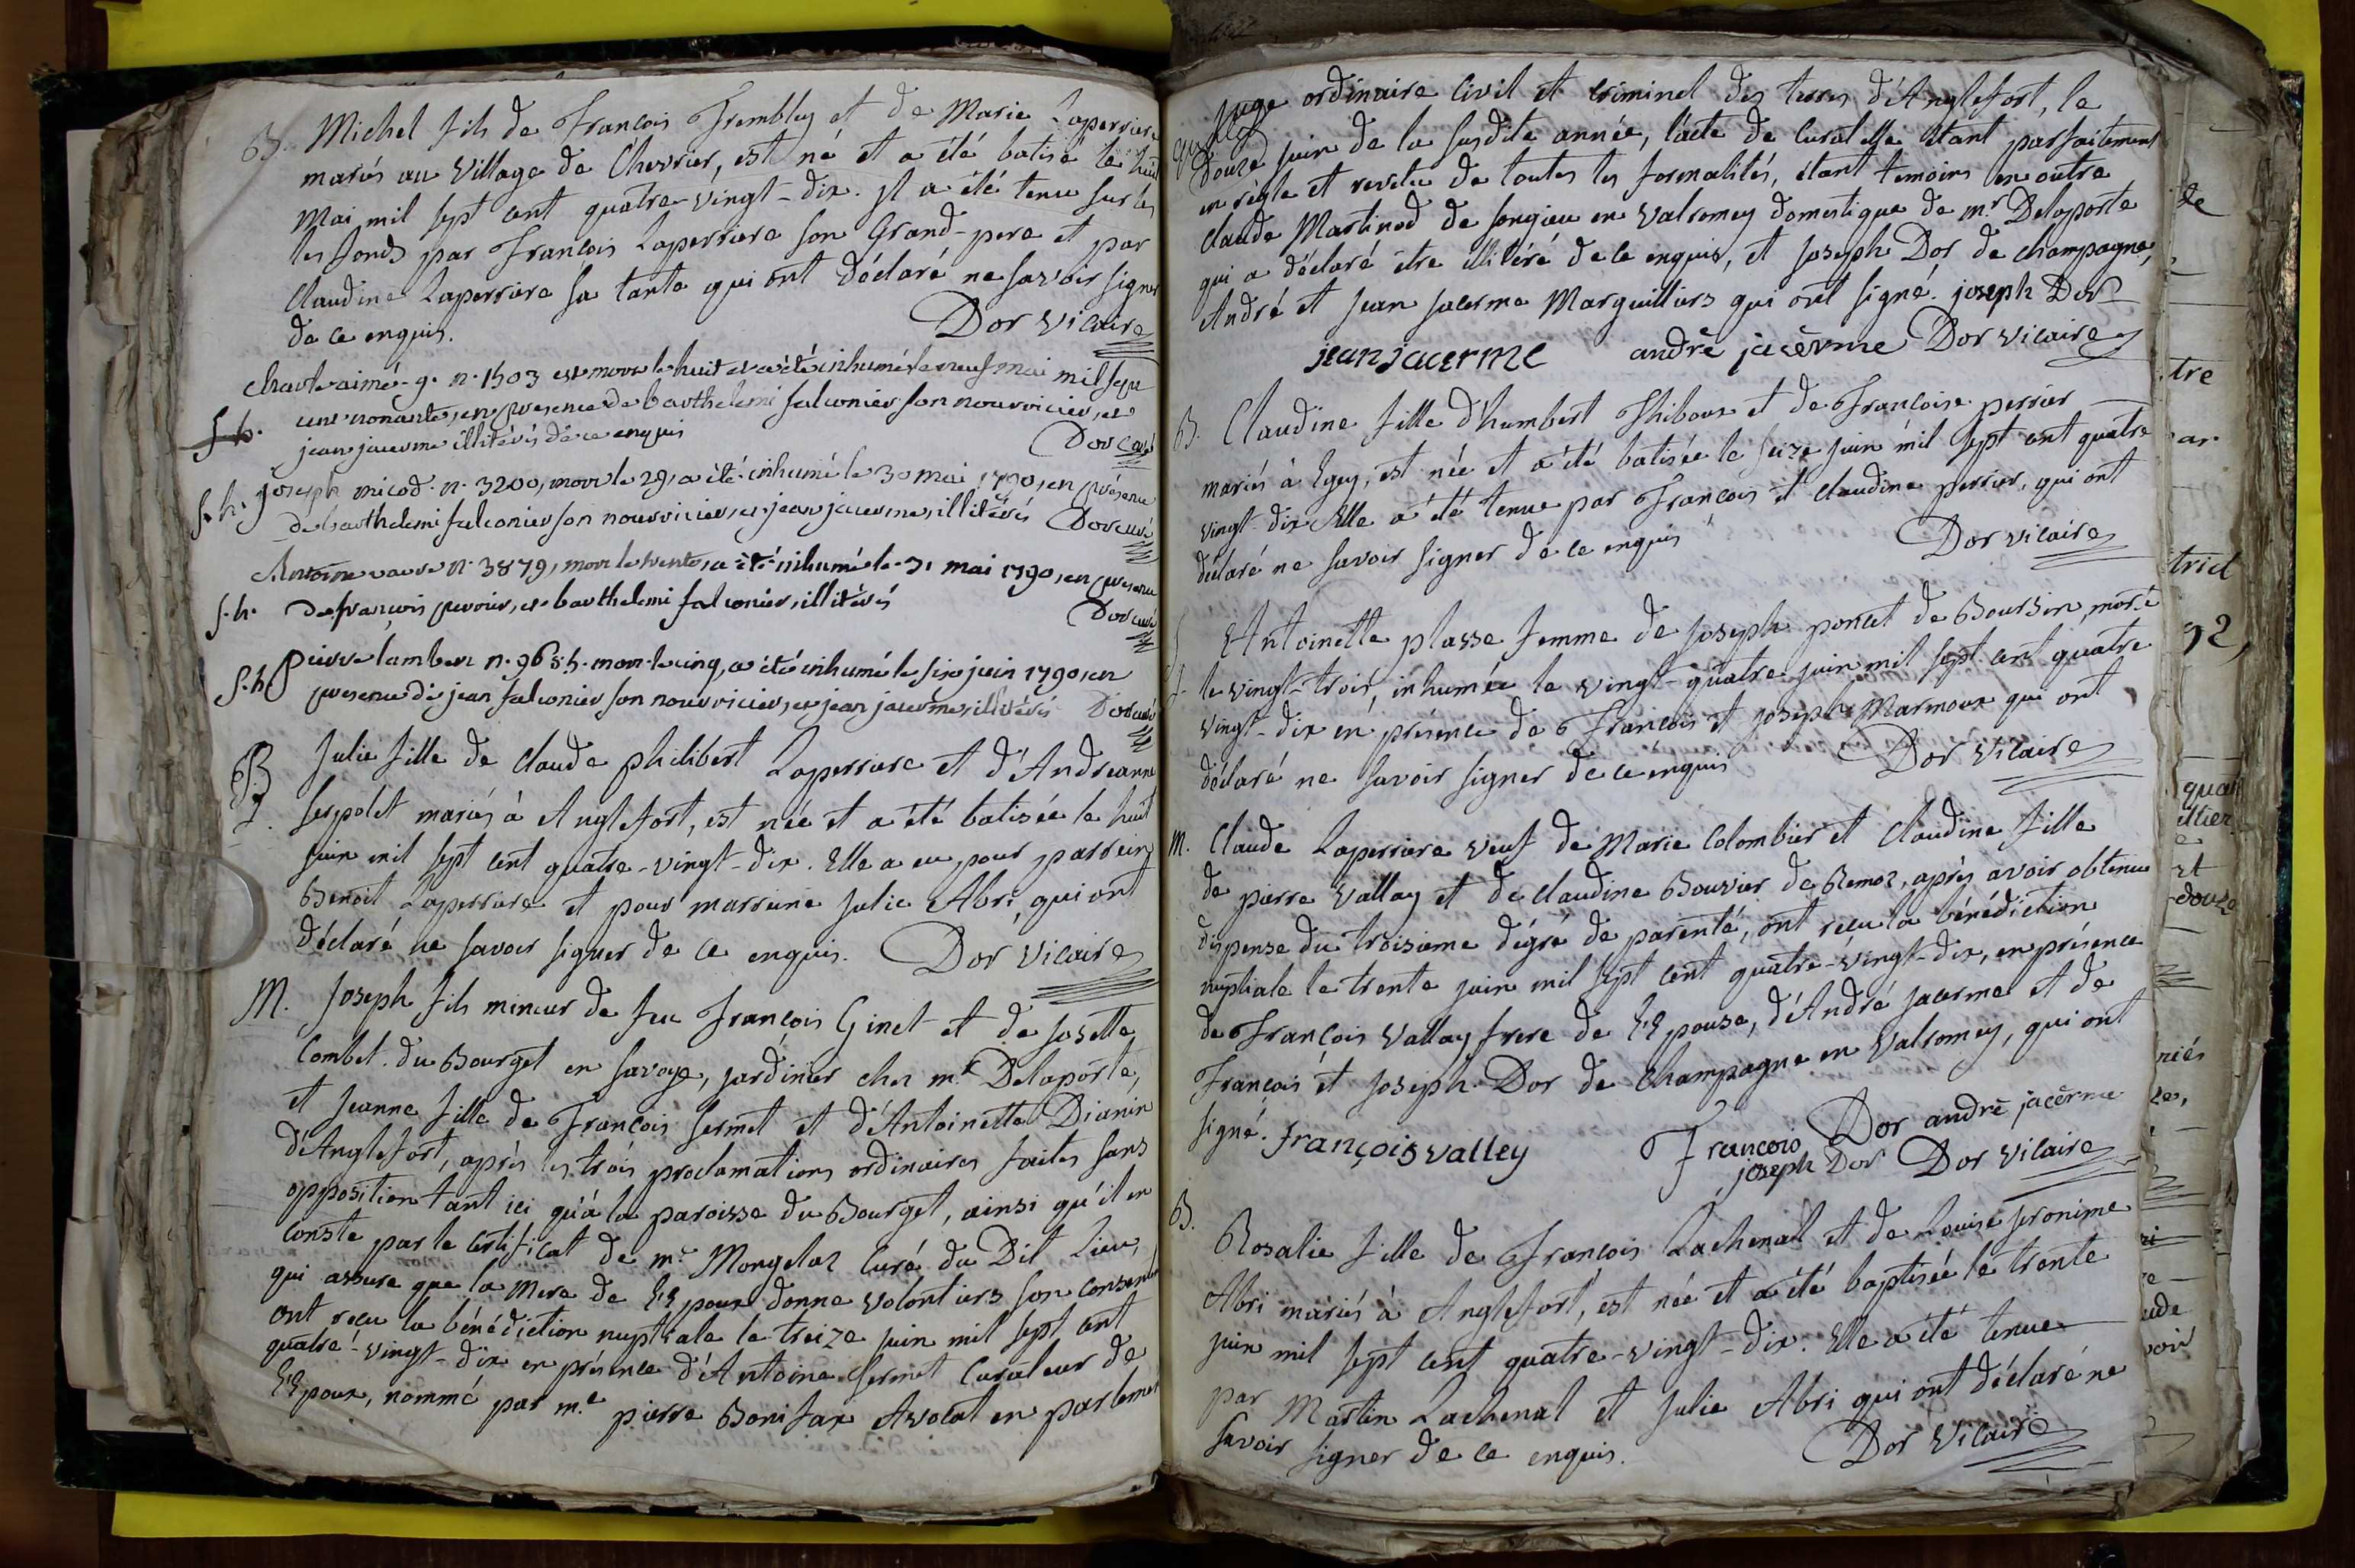 B. Michel fils de François Trembley et de Marie Laperriere
mariés au Village de Chevrier, est né et a été batisé le huit
Mai mil sept cent quatre-vingt-dix. Il a été tenu sur les
les fonds par François Laperriere son Grand-pere et par
Claudine Laperriere sa tante qui ont déclaré ne savoir signer
de ce enquis. Dor Vicaire
Charle aimé. g. n. 1503 est mort le huit et a été inhumé le neuf mai mil sept
f. h. cent nonante, en presence de barthelemi falconier son nourricier, et
jean jacerme illitérés de ce enquis Dor curé
f. h. joseph micod. n. 3200, mort le 29, a été inhumé le 30 mai 1790, en présence
de barthelemi falconier son nourricier, et jean jacerme, illitérés Dor curé
Antoine n. 3879, mort le trente, a été inhumé le 31 mai 1790, en presence
f. h. de françois perrier, et barthelemi falconier, illitérés Dor curé
f. h. pierre lambert n. 965 h. mort le cinq, a été inhumé le six juin 1790, en
presence de jean falconier son nourricier, et jean jacerme, illitérés Dor curé
B Julie fille de Claude philibert Laperriere et d'Andreanne
Serpolet mariés à Anglefort, est née et a été batisée le huit
juin mil sept cent quatre-vingt-dix. Elle a eu pour parrein
Benoit Laperriere et pour marreine Julie Abri, qui ont
déclaré ne savoir signer de ce enquis. Dor Vicaire
M. Joseph fils mineur de feu François Ginet et de Josette
Combet du Bourget en Savoye, jardinier chez mr. Delaporte,
et Jeanne fille de François Sermet et d'Antoinette Dianin
d'Anglefort, après les trois proclamations ordinaires faites sans
opposition tant ici qu'à la paroisse du Bourget, ainsi qu'il en
conste par le certificat de mr. Mongelaz Curé du Dit Lieu,
qui assure que la Mere de l'Epoux donne volontiers son consent
ont reçu la bénédiction nuptiale le treize juin mil sept cent
quatre-vingt-dix en présence d'Antoine Sermet Curateur de
l'Epoux, nommé par me. pierre Bonifax Avocat en parlement
juge ordinaire civil et criminel des terres d'Anglefort, le
douze juin de la susdite année, l'acte de curatelle étant parfaitement
en règle et revetu de toutes les formalités, étant temoins en outre
Claude Martinod de Songieu en Valromey domestique de mr. Delaporte
qui a déclaré être illitéré de ce enquis, et Joseph Dor de champagne,
André et Jean Jacerme Marguilliers qui ont signé. joseph Dor
jean jacerme andré jacerme Dor vicaire
B. Claudine fille d'humbert Thiboux et de Françoise perrier
mariés à Egey, est née et a été batisée le seize juin mil sept cent quatre
vingt-dix Elle a été tenue par François et Claudine perrier, qui ont
déclaré ne savoir signer de ce enquis Dor vicaire
S. Antoinette plasse femme de Joseph poncet de Boursin, morte
le vingt-trois, inhumée le vingt-quatre juin mil sept cent quatre
vingt-dix en présence de François et Joseph Marmoux qui ont
déclaré ne savoir signer de ce enquis Dor Vicaire
M. Claude Laperriere veuf de Marie Colombier et Claudine fille
de pierre Vallay et de Claudine Bouvier de Remoz, après avoir obtenu
dispense du troisieme dégré de parenté, ont reçu la bénédiction
nuptiale le trente juin mil sept cent quatre-vingt-dix, en présence
de François Vallay frere de l'Epouse, d'André Jacerme et de
François et Joseph Dor de Champagne en Valromey, qui ont
signé. françois valley François Dor andré jacerme
joseph Dor Dor Vicaire
B. Rosalie fille de François Lachenal et de Louise Jeronime
Abri mariés à Anglefort, est née et a été baptisée le trente
juin mil sept cent quatre-vingt-dix. Elle a été tenue
par Martin Lachenal et Julie Abri qui ont déclaré ne
savoir signer de ce enquis. Dor Vicaire